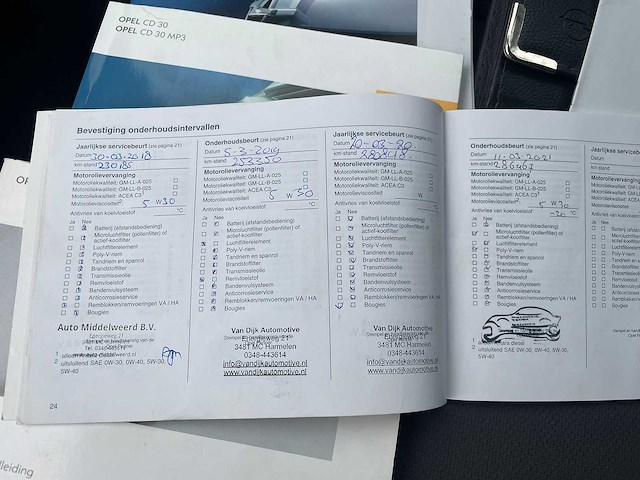 OPEL CD 30
OPEL CD 30 MP3
Bevestiging onderhoudsintervallen
Jaarlijkse servicebeurt (zie pagina 21)
Datum 30-03-2018
km-stand 230185
Motorolievervanging
Motoroliekwaliteit: GM-LL-A-025
Motoroliekwaliteit: GM-LL-B-025
Motoroliekwaliteit: ACEA C3
Motorolieviscositeit 5 W30
Antivries van koelvloeistof °C
Ja Nee
Batterij (afstandsbediening)
Microluchtfilter (pollenfilter) of
actief-koolfilter
Luchtfilterelement
Poly-V-riem
Tandriem en spanrol
Brandstoffilter
Transmissieolie
Remvloeistof
Bandenvulsysteem
Anticorrosieservice
Remblokken/remvoeringen VA / HA
Bougies
Auto Middelweerd B.V.
Energieweg 21
Tel. 0348
2 uitsluitend SAE 0W-30, 0W-40, 5W-30,
5W-40
24
Onderhoudsbeurt (zie pagina 21)
Datum 5-3-2019
km-stand 253350
Motorolievervanging
Motoroliekwaliteit: GM-LL-A-025
Motoroliekwaliteit: GM-LL-B-025
Motoroliekwaliteit: ACEA C3
Motorolieviscositeit 5 W 30
Antivries van koelvloeistof °C
Ja Nee
Batterij (afstandsbediening)
Microluchtfilter (pollenfilter) of
actief-koolfilter
Luchtfilterelement
Poly-V-riem
Tandriem en spanrol
Brandstoffilter
Transmissieolie
Remvloeistof
Bandenvulsysteem
Anticorrosieservice
Remblokken/remvoeringen VA / HA
Bougies
Van Dijk Automotive
Energieweg 21
3481 MC Harmelen
0348-443614
info@vandijkautomotive.nl
www.vandijkautomotive.nl
Jaarlijkse servicebeurt (zie pagina 21)
Datum 10-03-20
km-stand
Motorolievervanging
Motoroliekwaliteit: GM-LL-A-025
Motoroliekwaliteit: GM-LL-B-025
Motoroliekwaliteit: ACEA C3
Motorolieviscositeit W
Antivries van koelvloeistof °C
Ja Nee
Batterij (afstandsbediening)
Microluchtfilter (pollenfilter) of
actief-koolfilter
Luchtfilterelement
Poly-V-riem
Tandriem en spanrol
Brandstoffilter
Transmissieolie
Remvloeistof
Bandenvulsysteem
Anticorrosieservice
Remblokken/remvoeringen VA / HA
Bougies
Van Dijk Automotive
Energieweg 21
3481 MC Harmelen
0348-443614
info@vandijkautomotive.nl
www.vandijkautomotive.nl
Onderhoudsbeurt (zie pagina 21)
Datum 11-03-2021
km-stand 286467
Motorolievervanging
Motoroliekwaliteit: GM-LL-A-025
Motoroliekwaliteit: GM-LL-B-025
Motoroliekwaliteit: ACEA C3
Motorolieviscositeit 5 W 30
Antivries van koelvloeistof -20 °C
Ja Nee
Batterij (afstandsbediening)
Microluchtfilter (pollenfilter) of
actief-koolfilter
Luchtfilterelement
Poly-V-riem
Tandriem en spanrol
Brandstoffilter
Transmissieolie
Remvloeistof
Bandenvulsysteem
Anticorrosieservice
Remblokken/remvoeringen VA / HA
Bougies
2 uitsluitend SAE 0W-30, 0W-40, 5W-30,
5W-40
Jaarlijkse
Datum
km-stand
Motorolievervanging
Ja Nee